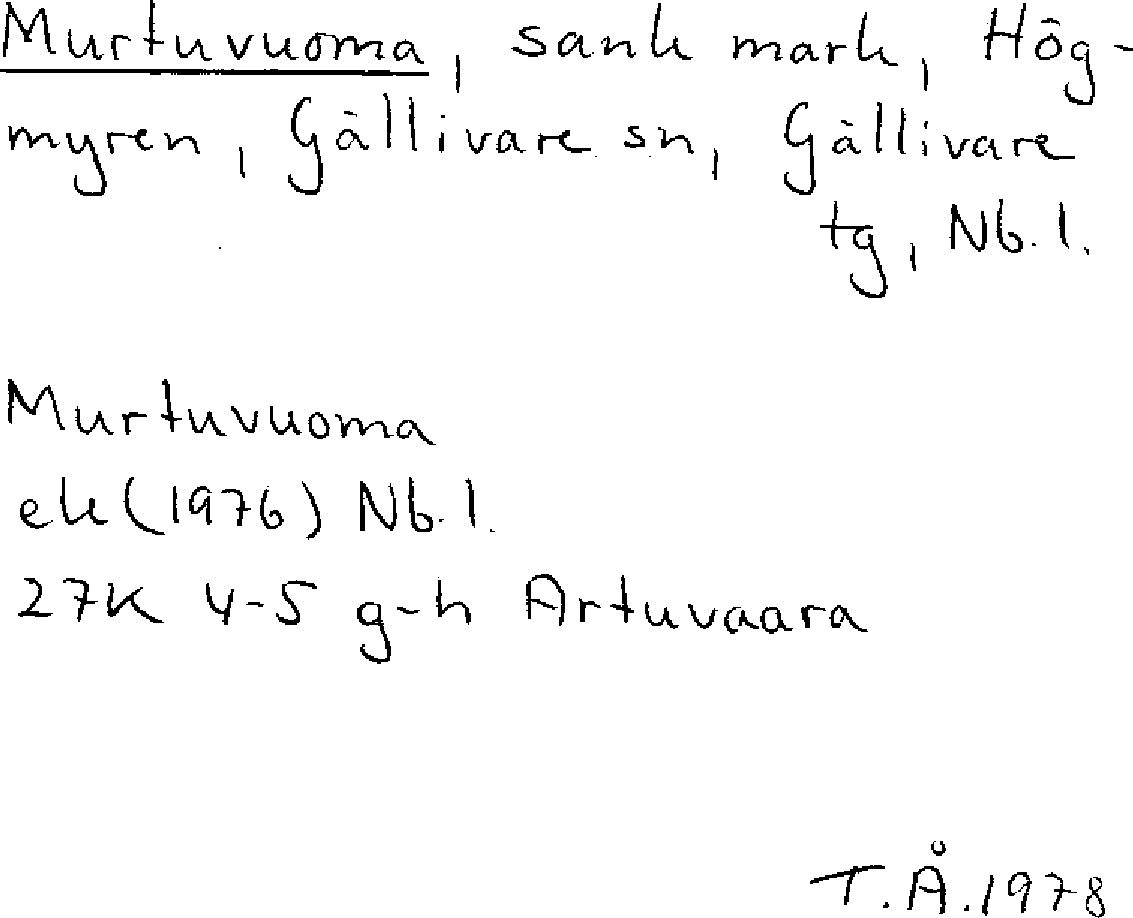 Murtuvuoma, sank mark, Hög-
myren, Gällivare sn, Gällivare
tg, Nb. l.
Murtuvuoma
ek (1976) Nb. l.
27K 4-5 g-h Artuvaara
T.Å.1978